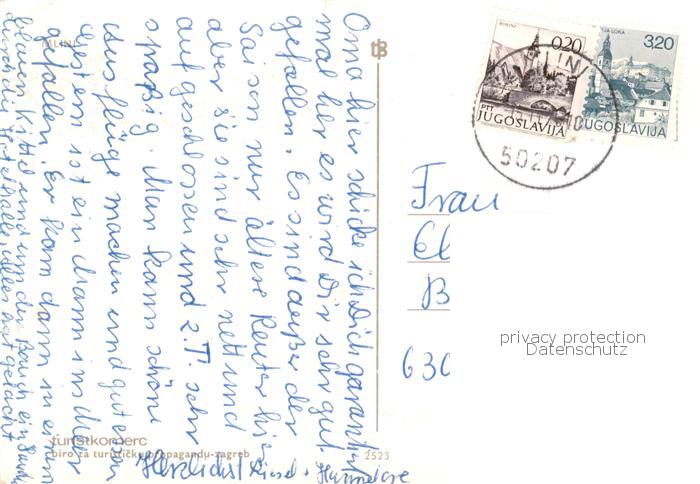 Oma hier schicke ich Dich garantiert
mal her es wird Dir sehr gut
gefallen. Es sind außer der
Saison nur ältere Leute hier
aber sie sind sehr nett und
aufgeschlossen und z.T. sehr
spaßig. Man kann schöne
Ausflüge machen und gut essen
gestern ist ein Mann ins Meer
gefallen. Er kam dann in einem
blauen Kittel und um den Bauch ein
durch die Hotelhalle, alles hat gelacht
Herzlichst
MLINI
turistkomerc
biro za turističku propagandu-zagreb
2523
0,20
PTT
JUGOSLAVIJA
3,20
JUGOSLAVIJA
MLINI
50207
Frau
El
B
630
privacy protection
Datenschutz